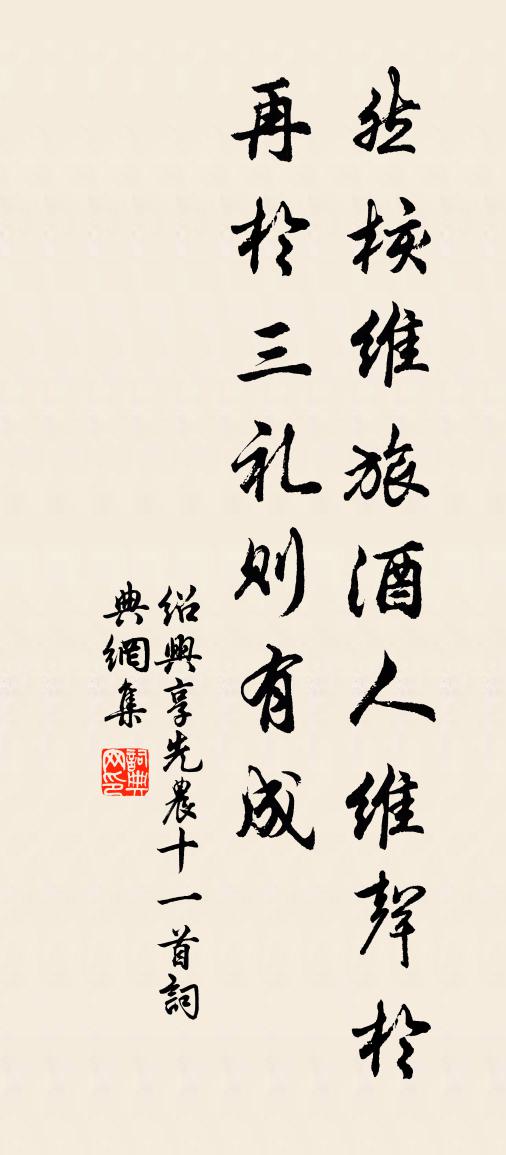 然核維旅酒人維聲於
再於三礼則有成
紹興享先農十一首詞
典網集
詞典
网印